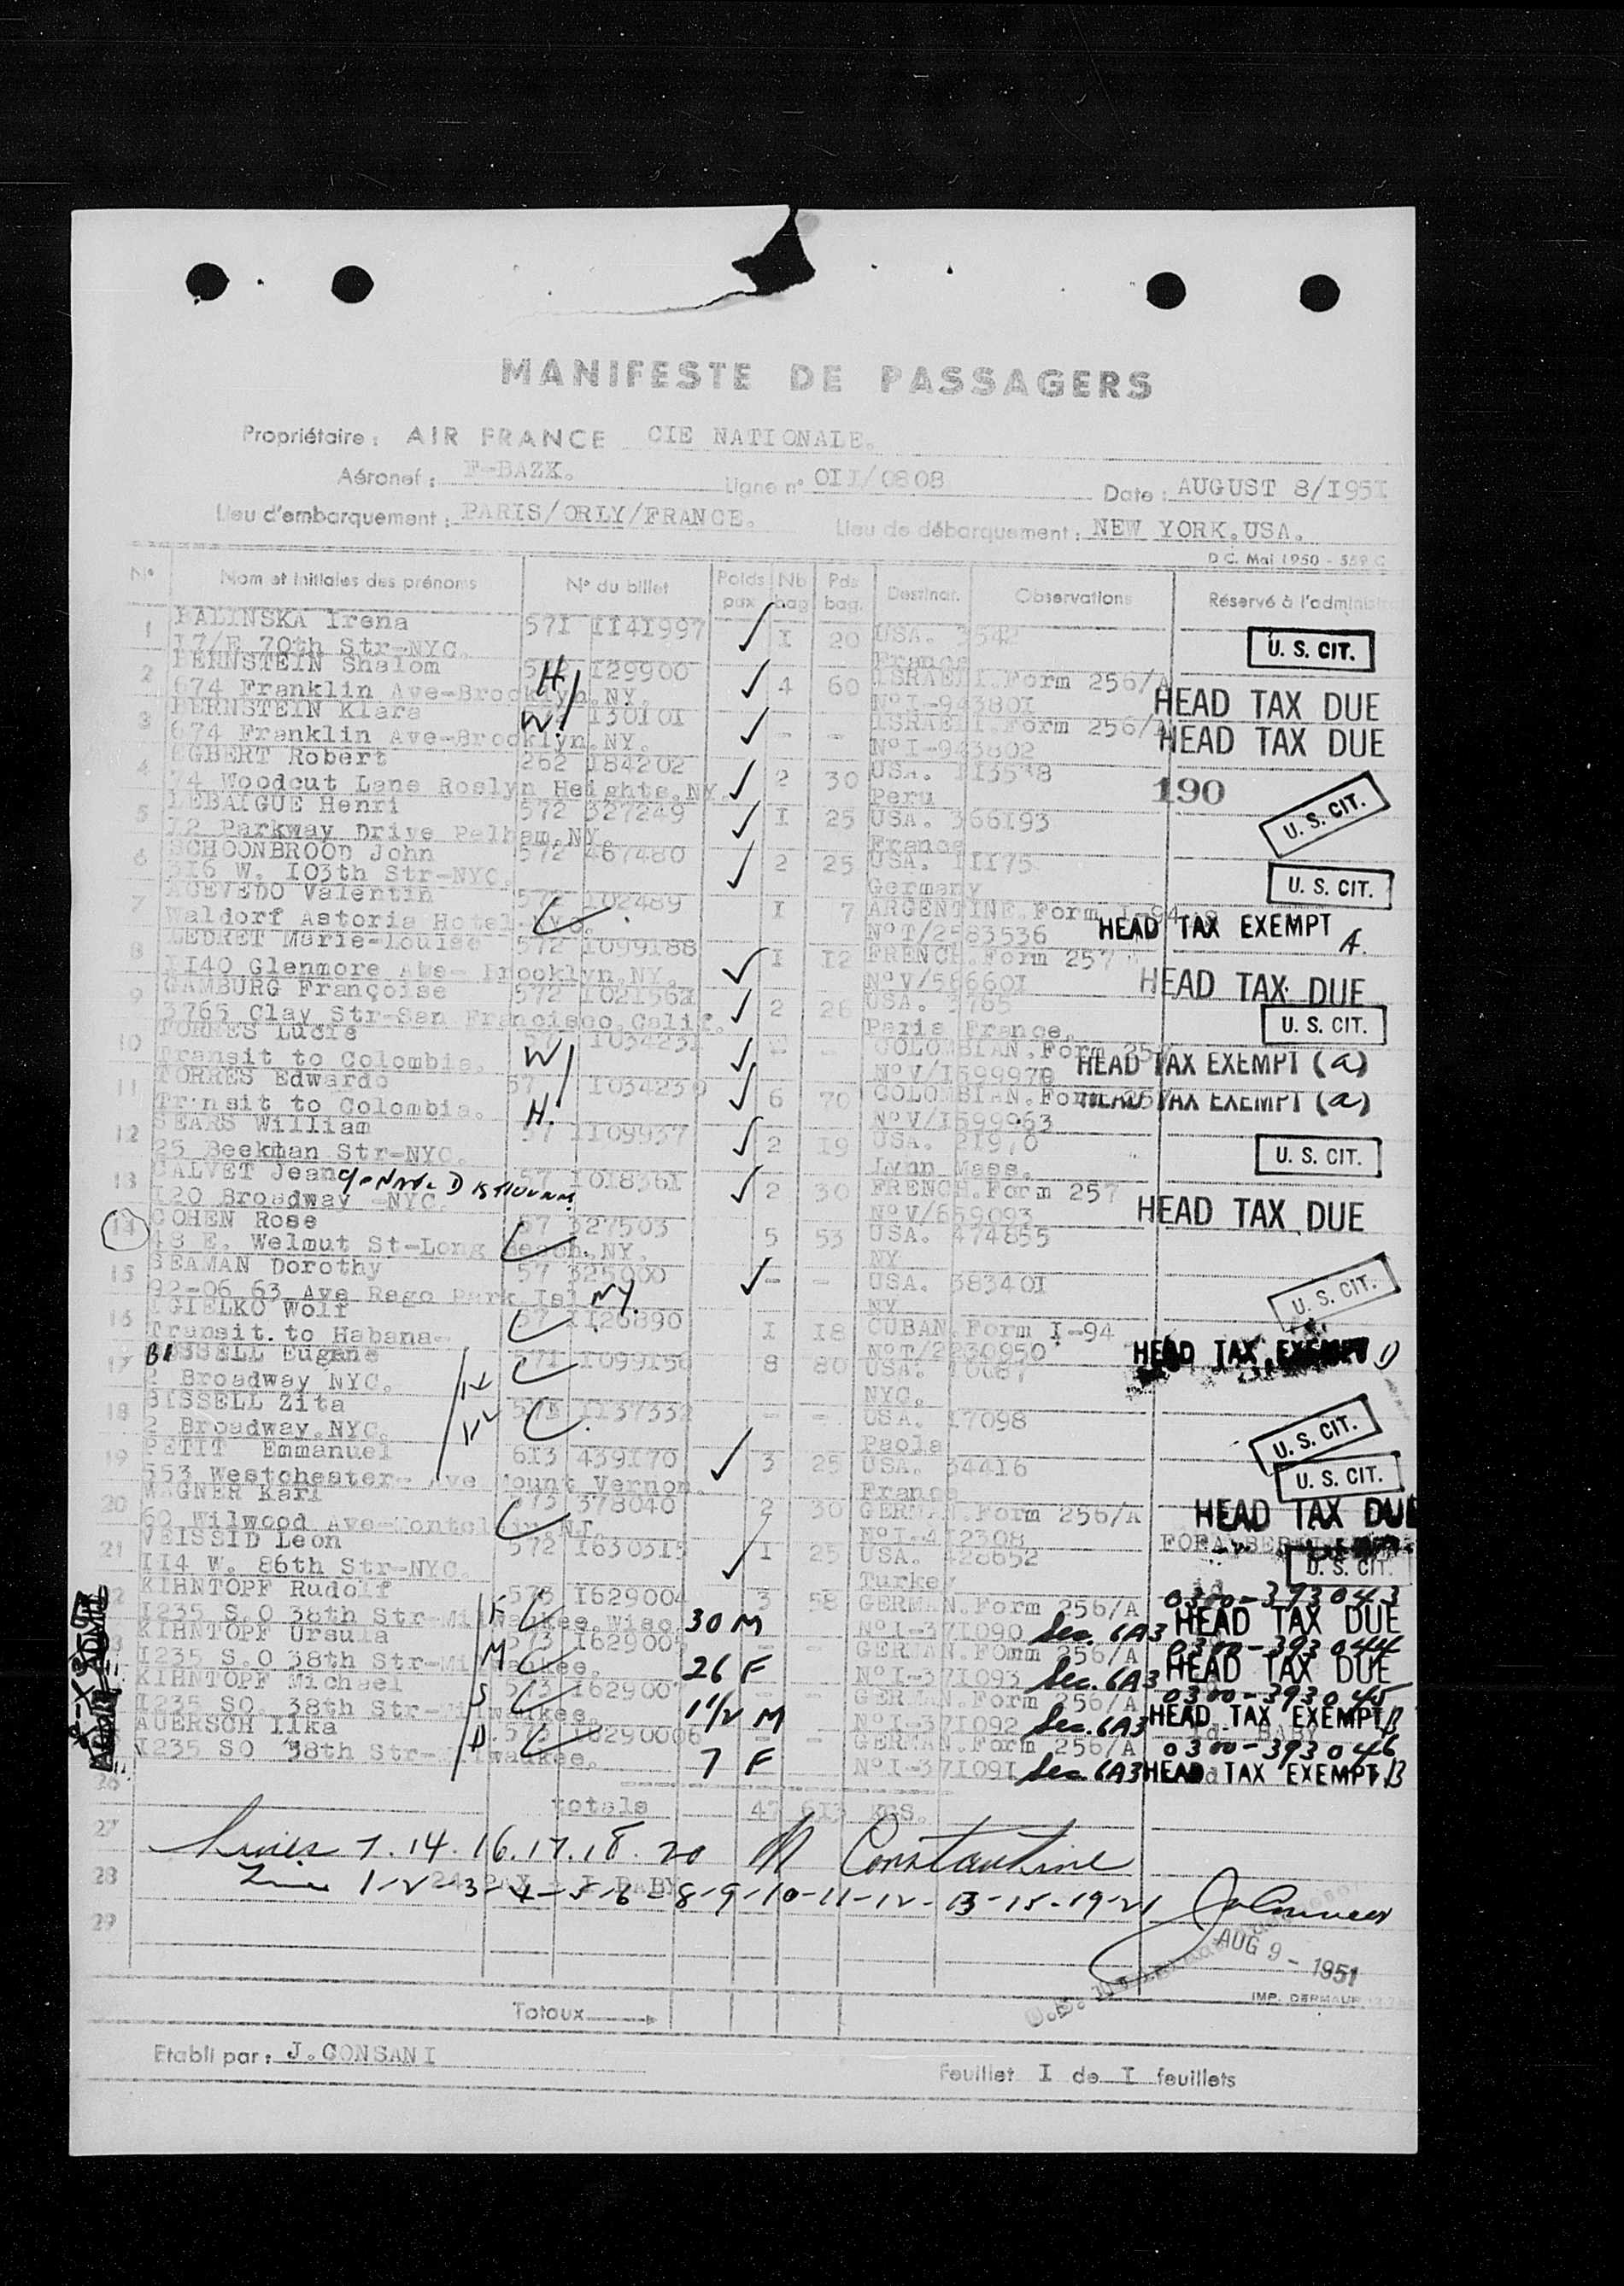 MANIFESTE DE PASSAGERS
Propriétaire : AIR FRANCE CIE NATIONALE.
Aéronef : F-BAZK. Ligne n° OII/0808 Date : AUGUST 8/I95I
Lieu d'embarquement : PARIS/ORLY/FRANCE. Lieu de débarquement : NEW YORK.USA.
D C. Mai 1950 - 559 C
N° Nom et initiales des prénoms N° du billet Poids pax Nb bag Pds bag. Destinat. Observations Réservé à l'administra
1 BALINSKA Irena 57I II4I997 I 20 USA. 3542
I7/E 70th Str-NYC. France U. S. CIT.
2 BERNSTEIN Shalom H I29900 4 60 ISRAELI.Form 256/A
674 Franklin Ave-Brooklyn.NY. N°I-94380I HEAD TAX DUE
3 BERNSTEIN Klara W I30I0I - - ISRAELI.Form 256/A
674 Franklin Ave-Brooklyn.NY. N°I-943802 HEAD TAX DUE
4 EGBERT Robert 262 I84202 2 30 USA.
74 Woodcut Lane Roslyn Heights.NY. Peru 190 U. S. CIT.
5 LEBAIGUE Henri 572 327249 I 25 USA. 366I93
I2 Parkway Drive Pelham.NY. France
6 SCHOONBROOD John 572 467480 2 25 USA. III75
3I6 W. I03th Str-NYC. Germany U. S. CIT.
7 ACEVEDO Valentin 572 I02489 I 7 ARGENTINE.Form I-94
Waldorf Astoria Hotel-NYC. N°T/2583536 HEAD TAX EXEMPT A.
8 LEDRET Marie-Louise 572 I099I88 I I2 FRENCH.Form 257
II40 Glenmore Ave- Brooklyn.NY. N°V/56660I HEAD TAX DUE
9 GAMBURG Françoise 572 I02I562 2 26 USA. 3765
3765 Clay Str-San Francisco.Calif. Paris France. U. S. CIT.
10 TORRES Lucie 57 I03423I - COLOMBIAN.Form 257
Transit to Colombia. W N°V/I599970 HEAD TAX EXEMPT (a)
11 TORRES Edwardo 57 I034230 6 70 COLOMBIAN.Form 257
Transit to Colombia. H. N°V/I599963 HEAD TAX EXEMPT (a)
12 SEARS William 57 II09937 2 I9 USA.
25 Beekman Str-NYC. Lynn Mass. U. S. CIT.
13 CALVET Jean 57 I0I836I 2 30 FRENCH.Form 257
I20 Broadway -NYC. N°V/659093 HEAD TAX DUE
14 COHEN Rose 57 327503 5 53 USA. 474855
48 E. Welmut St-Long Beach.NY. NY
15 SEAMAN Dorothy 57 325000 - - USA. 38340I
92-06 63 Ave Rego Park Isl NY. NY U. S. CIT.
16 Wolf 57 II26890 I I8 CUBAN.Form I-94
Transit.to Habana- N°T/2230950 HEAD TAX EXEMPT
17 BISSELL Eugene 57I I099I56 8 80 USA.
2 Broadway NYC. NYC.
18 BISSELL Zita 57I II37332 - - USA. I7098
2 Broadway.NYC. Paola U. S. CIT.
19 PETIT Emmanuel 6I3 439I70 3 25 USA. 344I6
553 Westchester- Ave Mount Vernon. France U. S. CIT.
20 WAGNER Karl 573 378040 2 30 GERMAN.Form 256/A
60 Wilwood Ave-Montclair.NJ. N°I-4I2308 HEAD TAX DUE
21 VEISSID Leon 572 I6303I5 I 25 USA. 428652
II4 W. 86th Str-NYC. Turkey U. S. CIT.
22 KIHNTOPF Rudolf 573 I629004 3 58 GERMAN.Form 256/A 0300-393043
I235 S.O 38th Str-Milwaukee.Wisc. 30 M N°I-37I090 Sec. 6A3 HEAD TAX DUE
KIHNTOPF Ursula 573 I629005 - - GERMAN.Form 256/A 0300-393044
I235 S.O 38th Str-Milwaukee. M 26 F N°I-37I093 Sec. 6A3 HEAD TAX DUE
KIHNTOPF Michael 573 I62900 - - GERMAN.Form 256/A 0300-393045
I235 SO. 38th Str-Milwaukee. S 1 1/2 M N°I-37I092 Sec. 6A3 HEAD TAX EXEMPT B
AUERSCH Ilka 573 - - GERMAN.Form 256/A 0300-393046
I235 SO 38th Str-Milwaukee. D 7 F N°I-37I09I Sec. 6A3 HEAD TAX EXEMPT B
26
totals 47 6I3 KGS.
27
7. 14. 16. 17. 18. 20 Constantine
28 24 PAX + I BABY
1-2-3-4-5-6-8-9-10-11-12-13-15-19-21
29
AUG 9 - 1951
IMP. DERMAUR
Totaux
Etabli par : J.CONSANI
Feuillet I de I feuillets